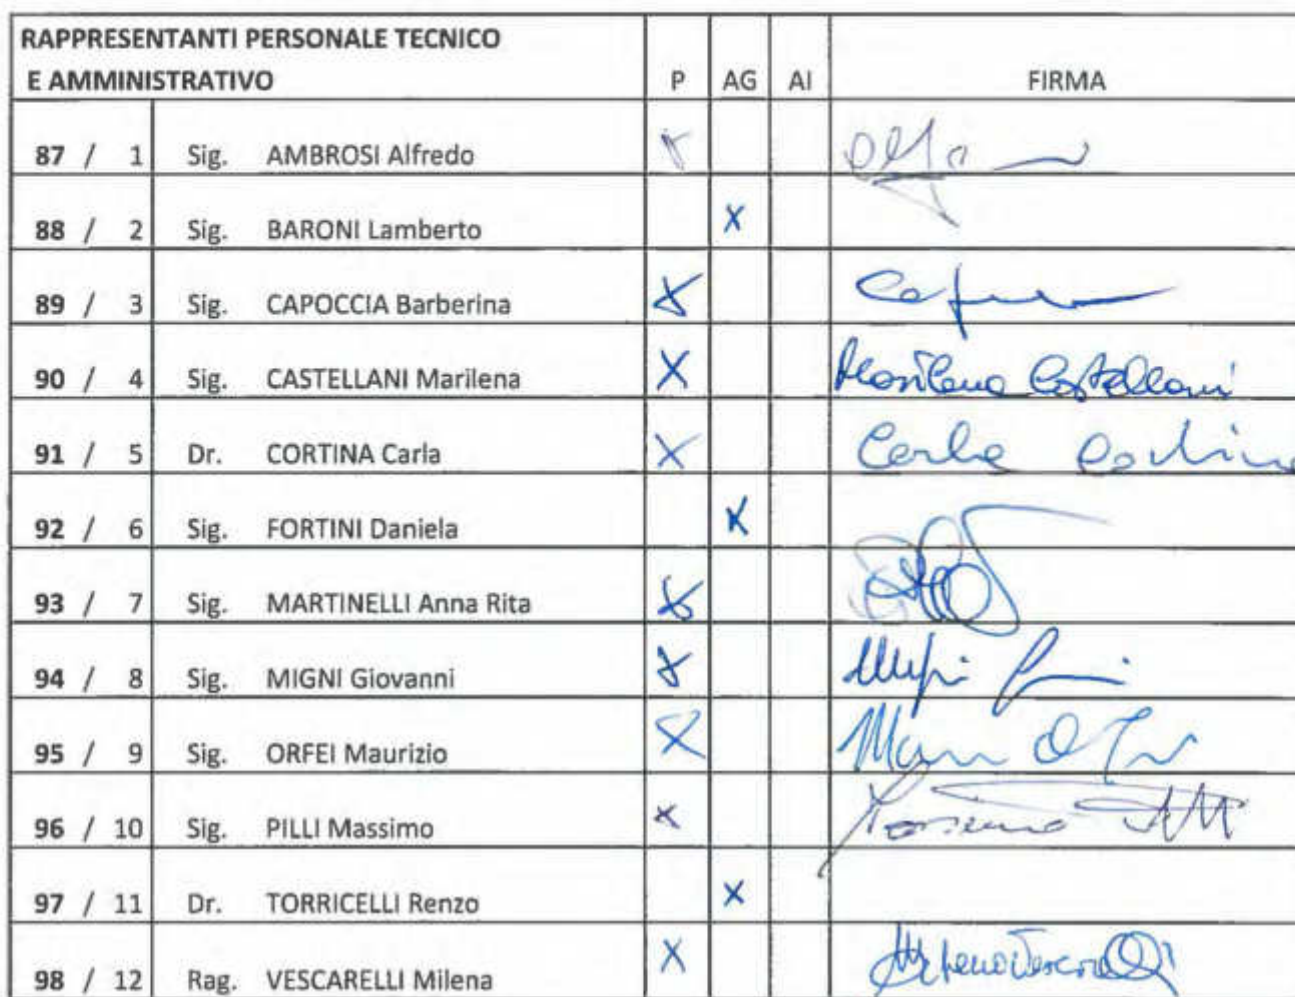 RAPPRESENTANTI PERSONALE TECNICO
E AMMINISTRATIVO P AG AI FIRMA
87 / 1 Sig. AMBROSI Alfredo X
88 / 2 Sig. BARONI Lamberto X
89 / 3 Sig. CAPOCCIA Barberina X
90 / 4 Sig. CASTELLANI Marilena X Marilena Castellani
91 / 5 Dr. CORTINA Carla X Carla Cortina
92 / 6 Sig. FORTINI Daniela X
93 / 7 Sig. MARTINELLI Anna Rita X
94 / 8 Sig. MIGNI Giovanni X
95 / 9 Sig. ORFEI Maurizio X
96 / 10 Sig. PILLI Massimo X
97 / 11 Dr. TORRICELLI Renzo X
98 / 12 Rag. VESCARELLI Milena X